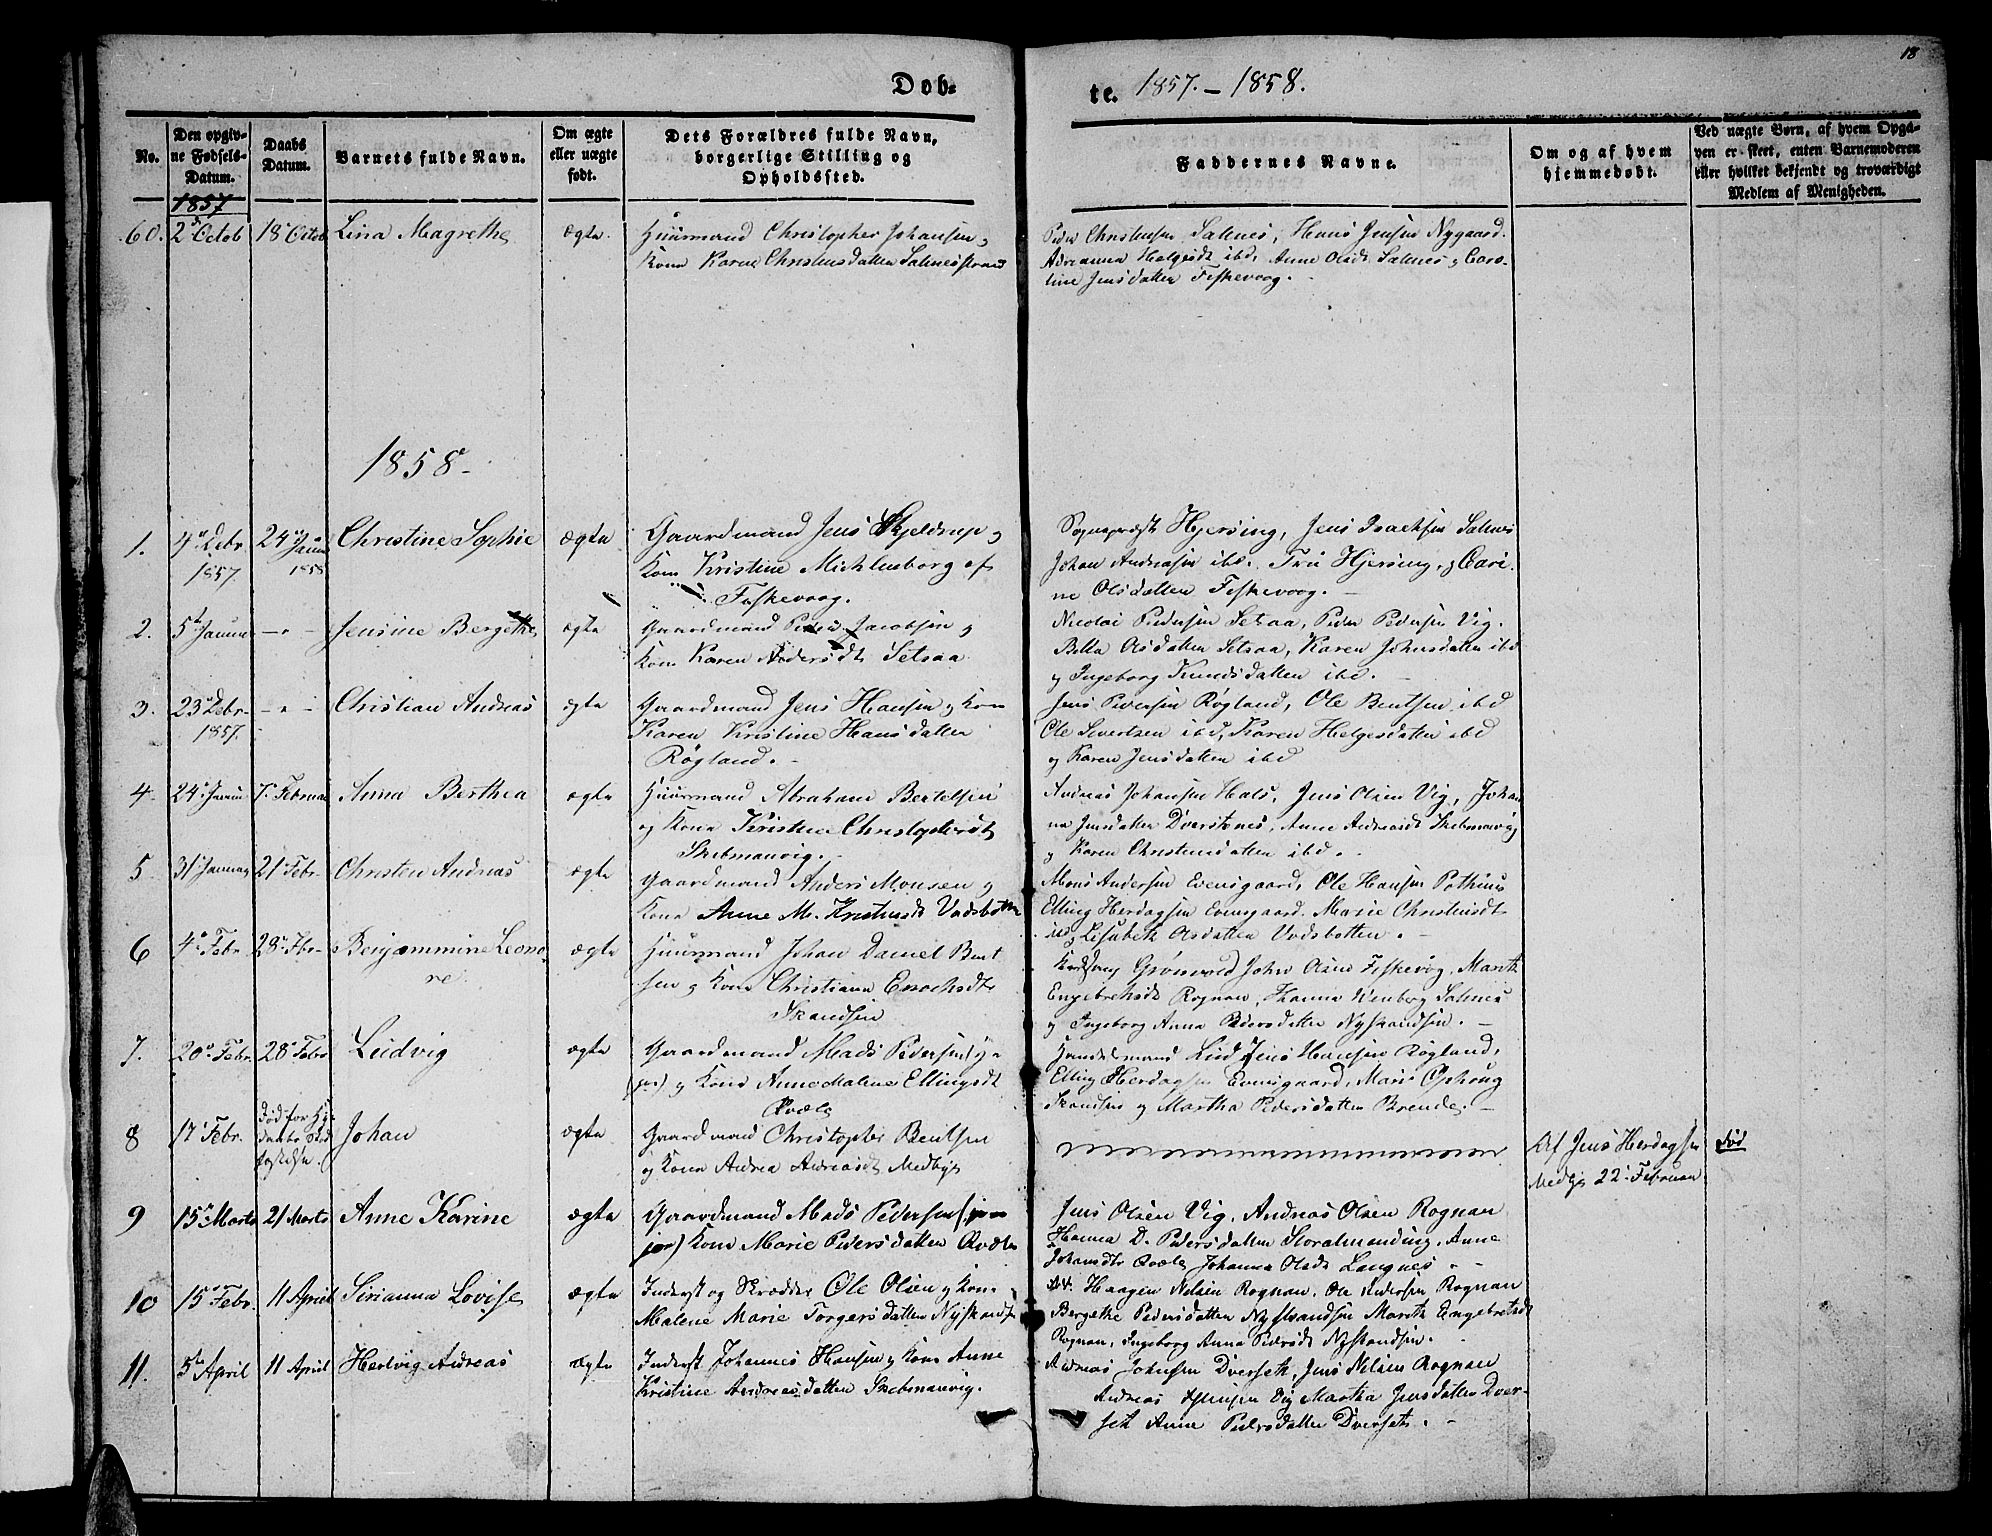 18
Døb-
te. 1857.-1858.
No.
Den opgiv-
ne Fødsels-
Datum.
Daabs
Datum.
Barnets fulde Navn.
Om ægte
eller uægte
født.
Dets Forældres fulde Navn,
borgerlige Stilling og
Opholdssted.
Faddernes Navne.
Om og af hvem
hjemmedøbt.
Ved uægte Børn, af hvem Opgi-
ven er skeet, enten Barnemoderen
eller hvilket bekjendt og troværdigt
Medlem af Menigheden.
1857
60. 2 Octob 18 Octob Lina Magrethe ægte Huusmand Christopher Johansen og
Kone Karen Christensdatter Salnesstrand
Peder Christensen Salnes, Hans Jensen Nygaard.
Adrianna Helgesdt ibd, Anne Olsdt Salnes og Caro-
line Jensdatter Feskevaag.
1858-
1. 4 Debr 1857 24 Janu 1858 Christine Sophie ægte Gaardmand Jens Skjeldrup og
Kone Kristine Michlenborg af
Feskevaag.
Sognepræst Hjersing, Jens Isachsen Salnes
Johan Andreasen ibd. Fru Hjersing, og Cari-
ne Olsdatter Feskevaag.
2. 5 Januar - " - Jensine Bergethe ægte Gaardmand Peder Jacobsen og
Kone Karen Andersdt Setsaa
Nicolai Pedersen Setsaa, Peder Pedersen Vig.
Olsdatter Setsaa, Karen Johnsdatter ibd
og Ingeborg Knudsdatter ibd.
3. 23 Debr 1857. - " - Christian Andreas ægte Gaardmand Jens Hansen og Kone
Karen Kristine Hansdatter
Røgland.
Jens Pedersen Røgland, Ole Bentsen ibd
Ole Sivertsen ibd, Karen Helgesdatter ibd
og Karen Jensdatter ibd
4. 24 Janu 7 Februar Anna Berthea ægte Huusmand Abraham Bertelsen
og Kone Kristine Christophersdt
Skebmanvig.
Andreas Johansen Hals, Jens Olsen Vig, Johan
na Jensdatter, Anne Andreasdt Skebmanvig
og Karen Christensdatter ibd.
5. 31 Januar 21 Febr. Christen Andreas ægte Gaardmand Anders Monsen og
Kone Anne M. Kristensdt Vadsbotten
Mons Andersen Evensgaard, Ole Hansen Pothus
Elling Herdagsen Evensgaard. Marie Christensdt
og Lisabeth Olsdatter Vadsbotten.
6 4 Febr 28 Fbr. Benjammine Leono-
re. ægte Huusmand Johan Daniel Bent
sen og Kone Christiana Enochsdt
Strandsen
Grønvold John Olsen Feskevog, Marith
Engebrehsdt Rognan, Hanna Salnes
og Ingeborg Anna Pedersdatter Nystrandsen.
7. 20 Febr. 28 Febr Ludvig ægte Gaardmand Mads Pedersen
og Kone Anne Malene Ellingsdt
Qvæle
Handelsmand Lud Jens Hansen Røgland,
Elling Herdagsen Evensgaard, Maris Ophoug
Strandsen og Martha Pedersdatter Brende.
8 17 Febr. Død for Johan ægte Gaardmand Christopher Bentsen
og Kone Andrea Andreasdt Medbye
Af Jens Herdagsen
Medbye 22 Februar
Død
9 15 Marts 21 Marts Anne Karine ægte Gaardmand Mads Pedersen
Kone Marie Pedersdatter Qvæle
Jens Olsen Vig, Andreas Olsen Rognan
Hanna D. Pedersdatter Storalmending, Anne
Johansdt Qvæle, Johanna Olsdt Langnes
10 15 Febr. 11 April Sirianna Lovise ægte Inderst og Skrædder Ole Olsen og Kone
Malene Marie Torgersdatter Nystrandse
Haagen Nilsen Rognan, Ole Pedersen Rognan
Bergethe Pedersdatter Nystrandsen Marith Engebretsdt
Rognan, Ingeborg Anna Pedersdt Nystrandsen.
11. 5 April 11 April Hartvig Andreas ægte Inderst Johannes Hansen og Kone Anne
Kristine Andreasdatter Skebmanvig.
Andreas Johnsen Dverseth, Jens Nilsen Rognan
Andreas Jensen Vig Martha Jensdatter Dver-
seth Anne Pedersdatter Dverseth.